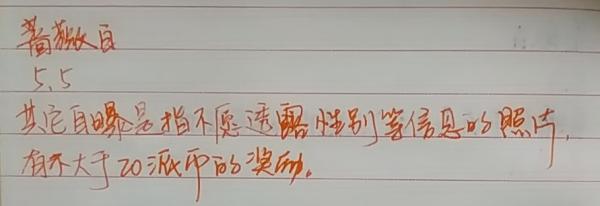 蔷薇白
5.5
其它自曝是指不愿透露性别等信息的照片,
有不大于20派币的奖励。